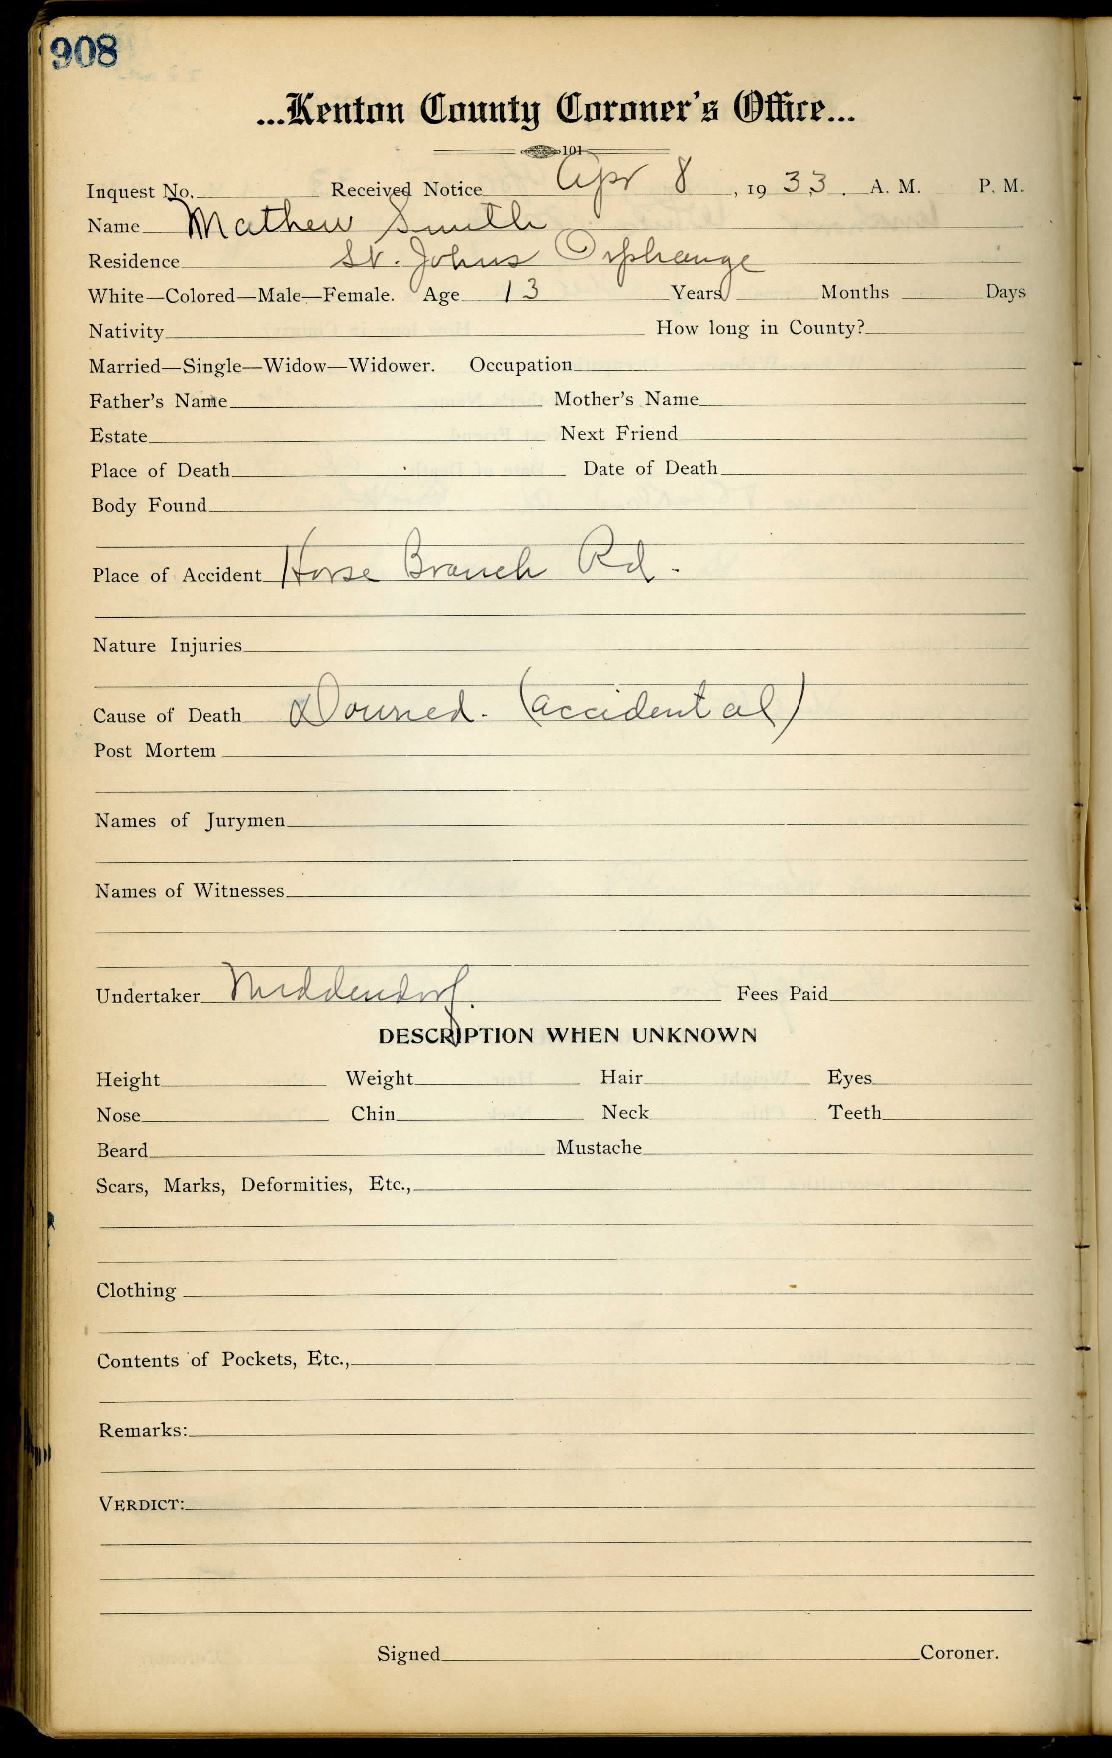 908
...Kenton County Coroner's Office...
101
Inquest No. Received Notice Apr 8, 1933. A. M. P. M.
Name Mathew Smith
Residence St. Johns Orphange
White—Colored—Male—Female. Age 13 Years Months Days
Nativity How long in County?
Married—Single—Widow—Widower. Occupation
Father's Name Mother's Name
Estate Next Friend
Place of Death Date of Death
Body Found
Place of Accident Horse Branch Rd.
Nature Injuries
Cause of Death Downed. (accidental)
Post Mortem
Names of Jurymen
Names of Witnesses
Undertaker Middendorf. Fees Paid
DESCRIPTION WHEN UNKNOWN
Height Weight Hair Eyes
Nose Chin Neck Teeth
Beard Mustache
Scars, Marks, Deformities, Etc.,
Clothing
Contents of Pockets, Etc.,
Remarks:
VERDICT:
Signed Coroner.